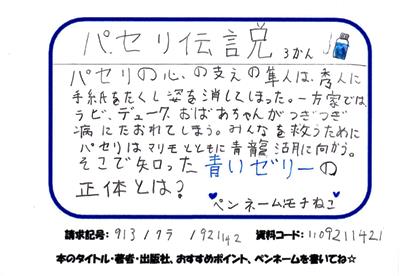 パセリ伝説 3かん
パセリの心の支えの隼人は、秀人に
手紙をたくし姿を消してしまった。一方家では、
ラビ、デューク、おばあちゃんがつぎつぎ
病にたおれてしまう。みんなを救うために
パセリはマリモとともに青龍湖に向かう。
そこで知った青いゼリーの
正体とは?
ペンネーム:モチねこ
請求記号: 913 /クラ /921142 資料コード: 1109211421
本のタイトル・著者・出版社、おすすめポイント、ペンネームを書いてね☆